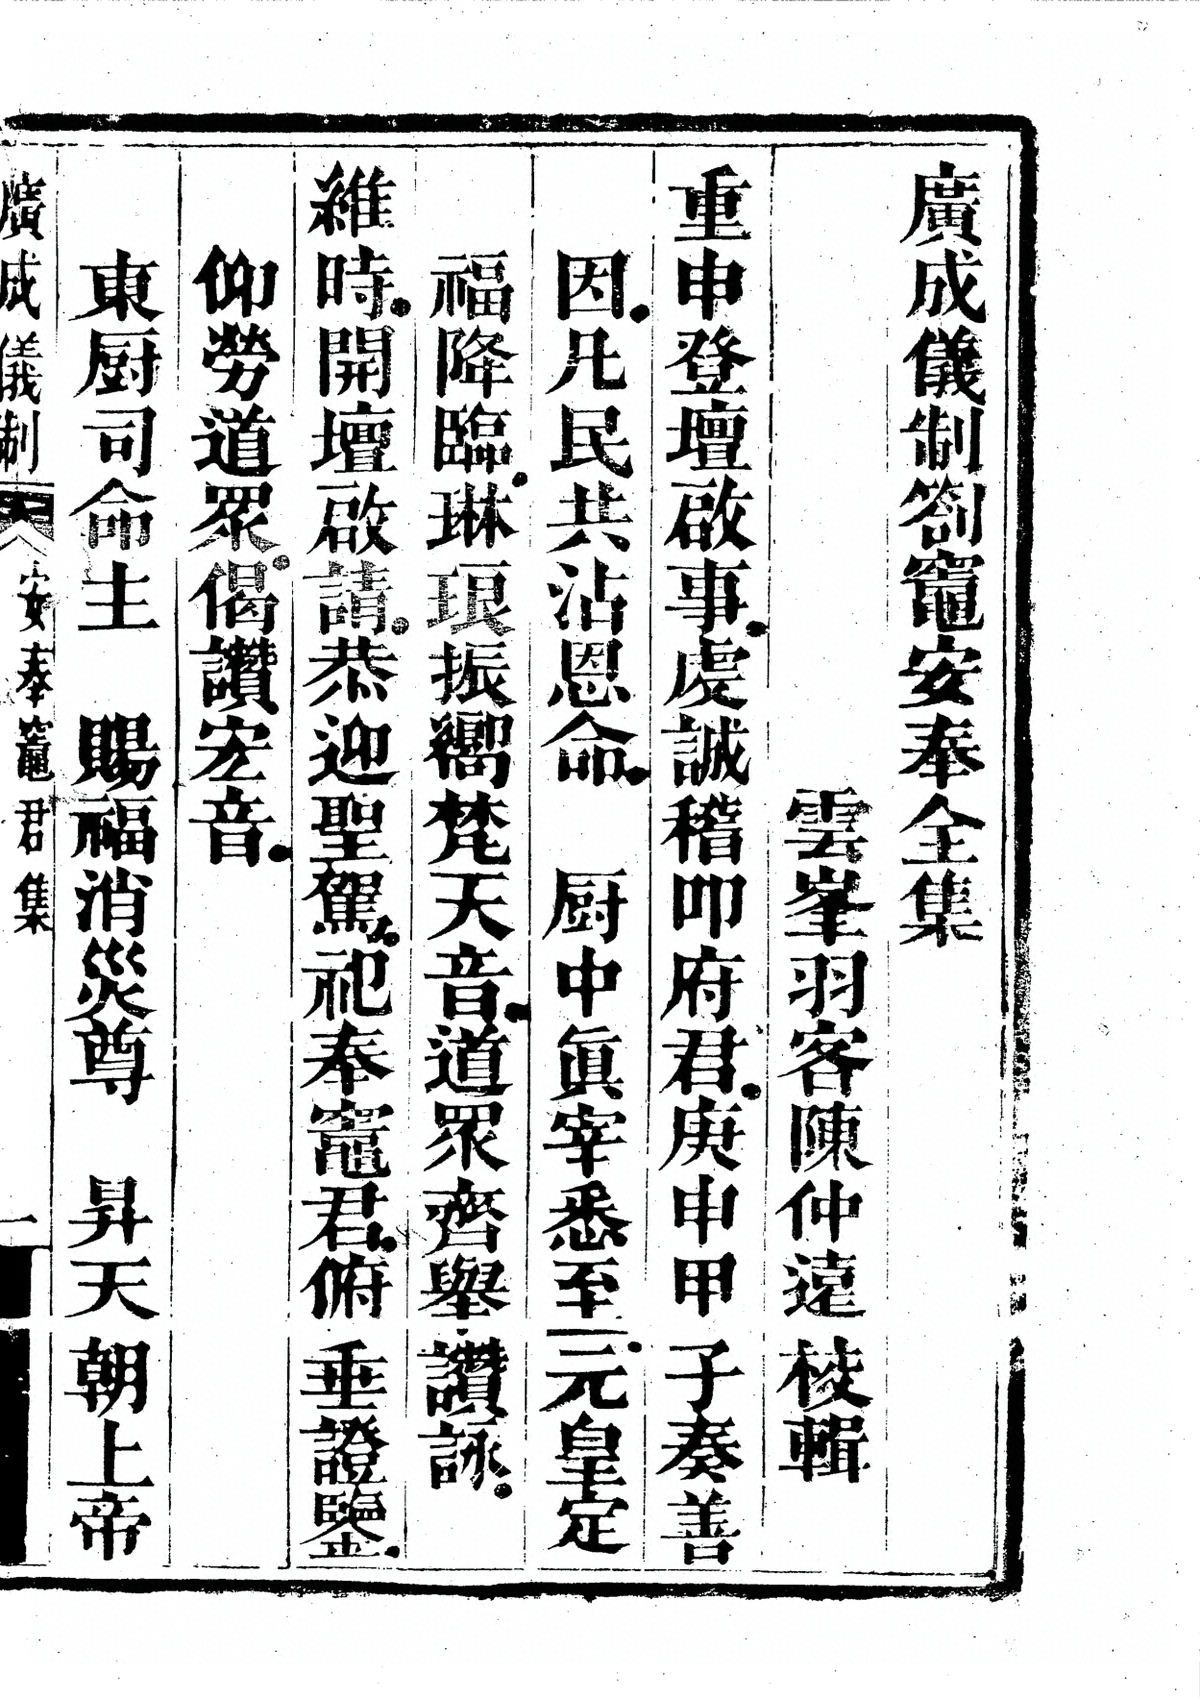 廣成儀制劄竈安奉全集
雲峯羽客陳仲遠校輯
重申登壇啟事虔誠稽叩府君庚申甲子奏善
因凡民共沾恩命 厨中眞宰悉至三元皇定
福降臨琳琅振嚮梵天音道眾齊舉讚詠
維時開壇啟請恭迎聖駕祀奉竈君俯垂證鑒
仰勞道眾偈讚宏音
東厨司命主 賜福消災尊 昇天朝上帝
廣成儀制 安奉竈君集 一